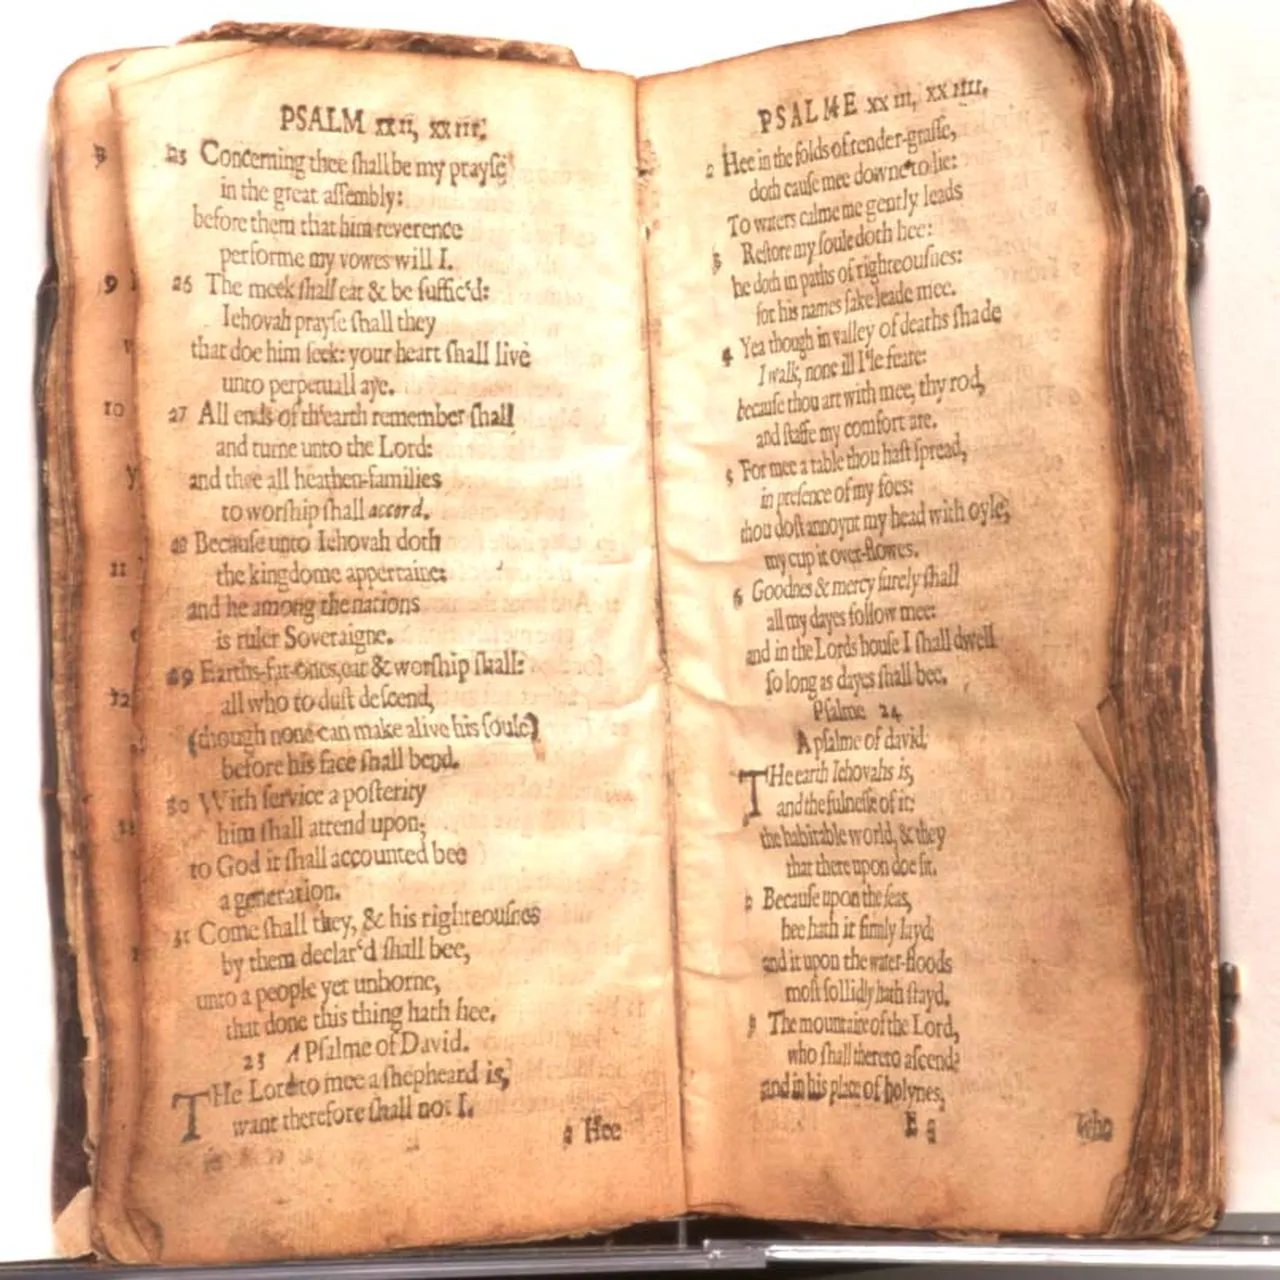 PSALM xxii, xxiii.
25 Concerning thee ſhall be my prayſe
in the great aſſembly:
before them that him reverence
performe my vowes will I.
26 The meek ſhall eat & be ſuffic'd:
Iehovah prayſe ſhall they
that doe him ſeek: your heart ſhall live
unto perpetuall aye.
27 All ends of th'earth remember ſhall
and turne unto the Lord:
and thee all heathen-families
to worſhip ſhall accord.
28 Becauſe unto Iehovah doth
the kingdome appertaine:
and he among the nations
is ruler Soveraigne.
29 Earths-fat-ones, eat & worſhip ſhall:
all who to duſt deſcend,
(though none can make alive his ſoule)
before his face ſhall bend.
30 With ſervice a poſterity
him ſhall attend upon;
to God it ſhall accounted bee
a generation.
31 Come ſhall they, & his righteouſnes
by them declar'd ſhall bee,
unto a people yet unborne,
that done this thing hath hee.
23 A Pſalme of David.
THe Lord to mee a ſhepheard is,
want therefore ſhall not I.
2 Hee
PSALME xxiii, xxiiii.
2 Hee in the folds of tender-graſſe,
doth cauſe mee downe to lie:
To waters calme me gently leads
3 Reſtore my ſoule doth hee:
he doth in paths of righteouſnes:
for his names ſake leade mee.
4 Yea though in valley of deaths ſhade
I walk, none ill I'le feare:
becauſe thou art with mee, thy rod,
and ſtaffe my comfort are.
5 For mee a table thou haſt ſpread,
in preſence of my foes:
thou doſt annoynt my head with oyle,
my cup it over-flowes.
6 Goodnes & mercy ſurely ſhall
all my dayes follow mee:
and in the Lords houſe I ſhall dwell
ſo long as dayes ſhall bee.
Pſalme 24
A pſalme of david.
THe earth Iehovahs is,
and the fulneſſe of it:
the habitable world, & they
that there upon doe ſit.
2 Becauſe upon the ſeas,
hee hath it firmly layd:
and it upon the water-floods
moſt ſollidly hath ſtayd.
3 The mountaine of the Lord,
who ſhall thereto aſcend?
and in his place of holynes,
E
Who